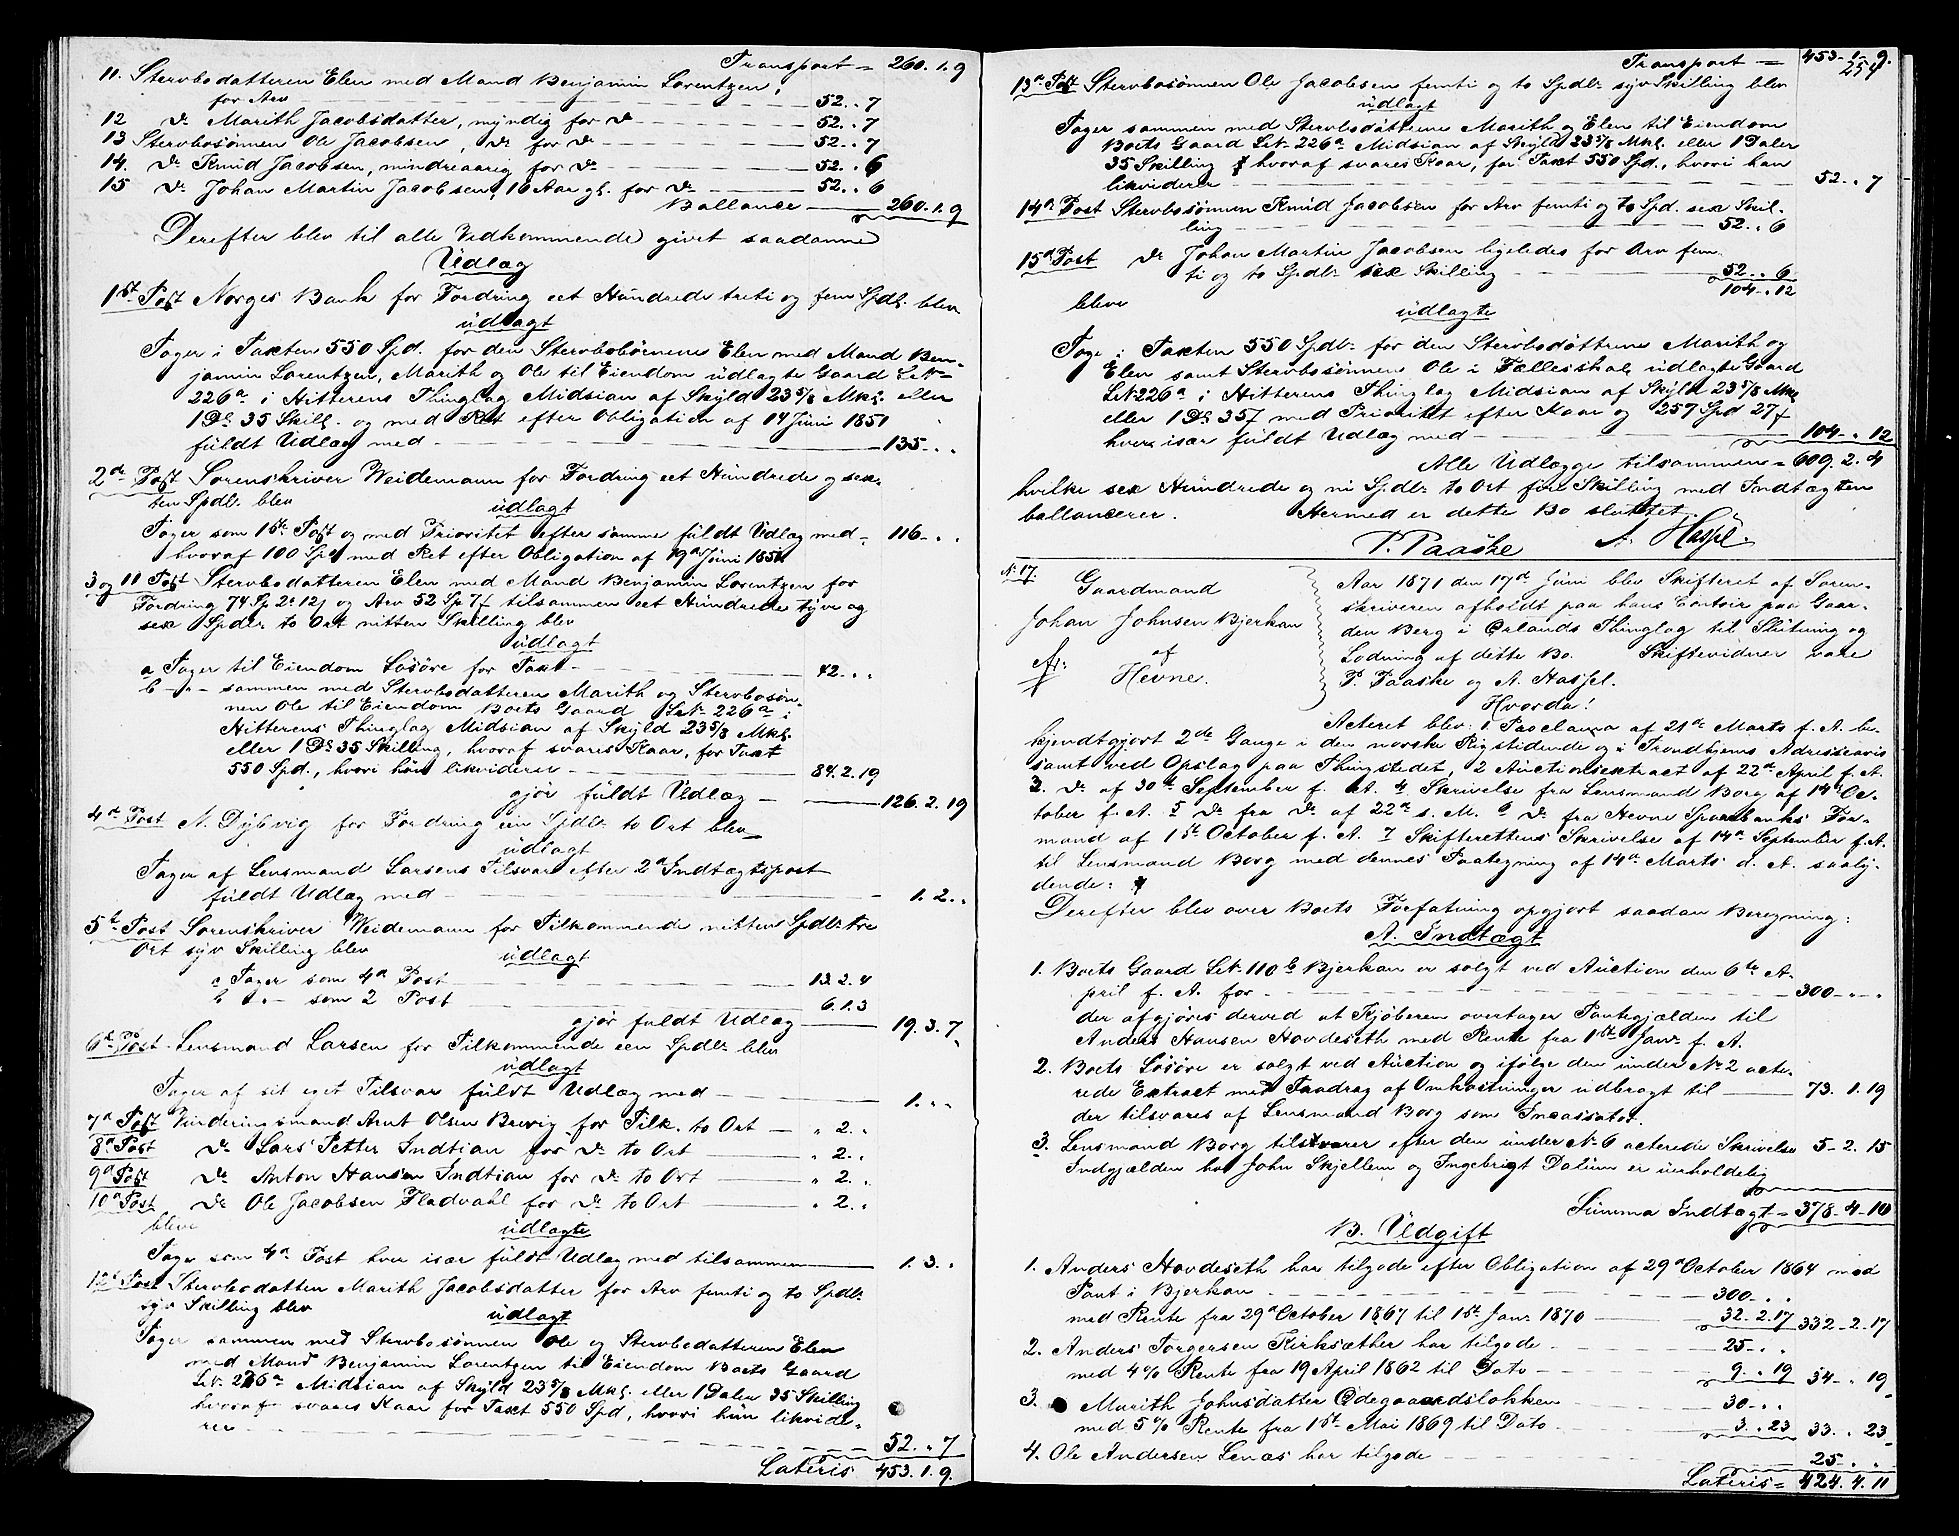 Transport = 260.1.9
11. Stervbodatteren Elen med Mand Benjamin Lorentzen,
for Arv 52.„7
12 Do Marith Jacobsdatter, myndig for do 52.„7
13 Stervbosønnen Ole Jacobsen, do for do 52.„7
14. Do Knud Jacobsen, mindreaarig for do 52.„6
15 Do Johan Martin Jacobsen, 16 Aar gl. for do 52.„6
Ballance 260.1.9
Derefter blev til alle Vedkommende givet saadanne
Udlæg
1ste Post Norges Bank for Fordring eet Hundrede treti og fem Spdl. blev
udlagt
Tager i Taxten 550 Spd. for den Stervbobørnene Elen med Mand Ben-
jamin Lorentzen, Marith og Ole til Eiendom udlagte Gaard LNo
226a i Hitterens Thinglag Midsian af Skyld 23 5/8 Mkl. eller
1 Dl. 35 Skill. og med Ret efter Obligation af 14 Juni 1851
fuldt Udlæg med 135.„.„
2den Post Sorenskriver Weidemann for Fordring eet Hundrede og sex-
ten Spdlr. blev udlagt
Tager som 1ste Post og med Prioritet efter samme fuldt Udlæg med 116.„.„
hvoraf 100 Spd med Ret efter Obligation af 19de Juni 1851
3 og 11 Post Stervbodatteren Elen med Mand Benjamin Lorentzen for
Fordring 74 Sp 2. 12 ʃ og Arv 52 Sp 7 ʃ tilsammen eet Hundrede tyve og
sex Spdlr. to Ort nitten Skilling blev
udlagt
a Tager til Eiendom Løsøre for Taxt 42.„.„
b - „ - sammen med Stervbodatteren Marith og Stervbosøn-
nen Ole til Eiendom Boets Gaard LNo 226a i
Hitterens Thinglag Midsian af Skyld 23 5/8 Mkl.
eller 1 Dl. 35 Skilling, hvoraf svares Kaar, for Taxt
550 Spd., hvori hun likviderer 84.2.19
gjør fuldt Udlæg 126.2.19
4de Post N. Dybvig for Fordring een Spdlr. to Ort blev
udlagt
Tager af Lensmand Larsens Tilsvar efter 2den Indtægtspost
fuldt Udlæg med 1.2.„
5te Post Sorenskriver Weidemann for Tilkommende nitten Spdlr. tre
Ort syv Skilling blev udlagt
a Tager som 4de Post 13.2.4
b d - „ - som 2 Post 6.1.3
gjør fuldt Udlæg 19.3.7
6te Post. Lensmand Larsen for Tilkommende een Spdlr. blev
udlagt
Tager af sit eget Tilsvar fuldt Udlæg med 1.„.„
7de Post Vurderingsmand Arnt Olsen Brevig for Tilk. to Ort „2.„
8de Post Do Lars Petter Indtian for do to Ort „2.„
9de Post Do Anton Hansen Indtian for do to Ort „2.„
10de Post Do Ole Jacobsen Fladvahl for do to Ort „2.„
bleve udlagte
Tager som 4de Post hver især fuldt Udlæg med tilsammen 1.3.„
12te Post Stervbodatten Marith Jacobsdatter for Arv femti og to Spdlr.
syv Skilling blev udlagt
Tager sammen med Stervbosønnen Ole og Stervbodatteren Elen
med Mand Benjamin Lorentzen til Eiendom Boets Gaard
LNo 226a Midsian af Skyld 23 5/8 Mkl. eller 1 Daler 35 Skilling
hvoraf svares Kaar for Taxt 550 Spd, hvori hun likvide-
rer 52.„7
Lateris 453.1.9.
Transport = 453-1-9.
254
13de Post Stervbosønnen Ole Jacobsen femti og to Spdlr. syv Skilling blev
udlagt
Tager sammen med Stervbodøttrene Marith og Elen til Eiendom
Boets Gaard LNo 226a Midsian af Skyld 23 5/8 Mkl. eller 1 Daler
35 Skilling hvoraf svares Kaar, for Taxt 550 Spd., hvori han
likviderer 52.„7
14de Post Stervbosønnen Knud Jacobsen for Arv femti og to Spd. sex Skil-
ling 52.„6
15de Post Do Johan Martin Jacobsen ligeledes for Arv fem-
ti og to Spdlr. sex Skilling 52.„6
104-„12
bleve udlagte
Tage i Taxten 550 Spdlr. for den Stervbodøttrene Marith og
Elen samt Stervbosønnen Ole i Fællesskab udlagte Gaard
LNo 226a i Hitterens Thinglag Midsian af Skyld 23 5/8 Mkl
eller 1 Dl. 35 ʃ med Prioritet efter Kaar og 257 Spd 27 ʃ
hver især fuldt Udlæg med 104-„12
Alle Udlægge tilsammen = 609.2.4
hvilke sex Hundrede og ni Spdlr. to Ort fire Skilling med Indtægten
ballancerer. Hermed er dette Bo sluttet.
P. Paaske A. Hassel.
No 17.
Gaardmand
Johan Johnsen Bjerkan
af
Hevne.
Aar 1871 den 17de Juni blev Skifteret af Soren-
skriveren afholdt paa hans Contoir paa Gaar-
den Berg i Ørlands Thinglag til Slutning og
Lodning af dette Bo. Skiftevidner vare
P. Paaske og A. Hassel.
Hvorda!
Acteret blev: 1 Proclama af 21de Marts f. A. be-
kjendtgjort 2de Gange i den norske Rigstidende og i Trondhjems Adresseavis
samt ved Opslag paa Thingstedet, 2 Auctionsextract af 22de April f. A.
3. Do af 30te September f. A. 4 Skrivelse fra Lensmand Borg af 14de Oc-
tober f. A. 5 Do fra Do af 22de s. M. 6 Do fra Hevne Sparebanks For-
mand af 1ste October f. A. 7 Skifterettens Skrivelse af 14de September f. A.
til Lensmand Borg med dennes Paategning af 14de Marts d. A. saaly-
dende:
Derefter blev over Boets Forfatning opgjort saadan Beregning:
A. Indtægt
1. Boets Gaard LNo 110 b Bjerkan er solgt ved Auction den 6te A-
pril f. A. for 300-„-„
der afgjøres derved at Kjøberen overtager Pantegjælden til
Anders Hansen Hovdeseth med Rente fra 1ste Janr. f. A.
2. Boets Løsøre er solgt ved Auction og ifølge den under No 2 acte-
rede Extract med Fradrag af Omkostninger udbragt til 73.1.19
der tilsvares af Lensmand Borg som Incassator.
3. Lensmand Borg tilsvarer efter den under No 6 acterede Skrivelse 5-2.15
Indgjælden hos John Skjellem og Ingebrigt Dalum er uerholdelig
Summa Indtægt = 378-4-10
B. Udgift
1. Anders Hovdeseth har tilgode efter Obligation af 29de October 1864 med
Pant i Bjerkan 300-„.„
med Rente fra 29de October 1867 til 1ste Janr. 1870 32.2.17 332-2-17
2. Anders Torgersen Kirksæther har tilgode 25-„.„
med 4% Rente fra 19 April 1862 til Dato 9.„19 34-„19
3. Marith Johnsdatter Ødegaardsløkken 30-„.„
med 5% Rente fra 1ste Mai 1869 til Dato 3.„23 33.„23
4. Ole Andersen Lenæs har tilgode 25-„.„
Lateris = 424.4.11